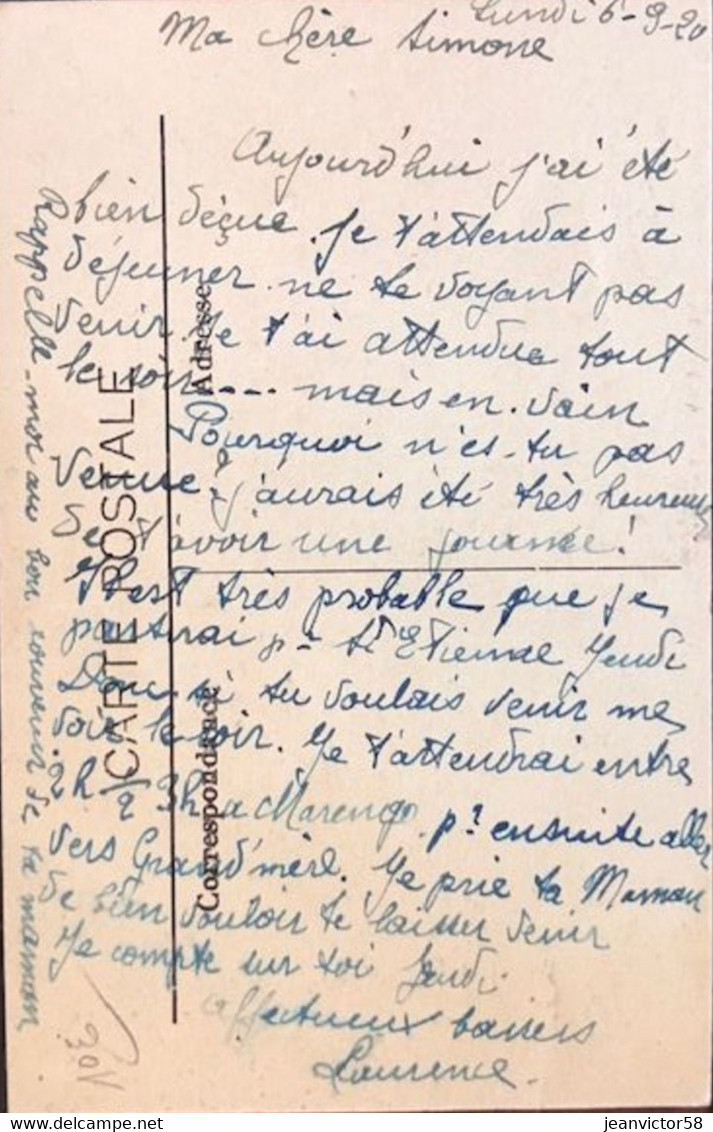 Lundi 6-9-20
Ma chère Simone
Aujourd'hui j'ai été
bien déçue. Je t'attendais à
déjeuner ne te voyant pas
venir je t'ai attendue tout
le soir --- mais en vain
Pourquoi n'es-tu pas
venue? j'aurais été très heureuse
de t'avoir une journée!
Il est très probable que je
partirai pr St Etienne Jeudi
Donc si tu voulais venir me
voir le soir. Je t'attendrai entre
2h 1/2 3h a Marengo pr ensuite aller
vers Grand'mère. Je prie ta Maman
de bien vouloir te laisser venir
Je compte sur toi Jeudi.
affectueux baisers
Laurence.
Rappelle-moi au bon souvenir de ta maman
CARTE POSTALE
Correspondance
Adresse
30V
delcampe.net
jeanvictor58